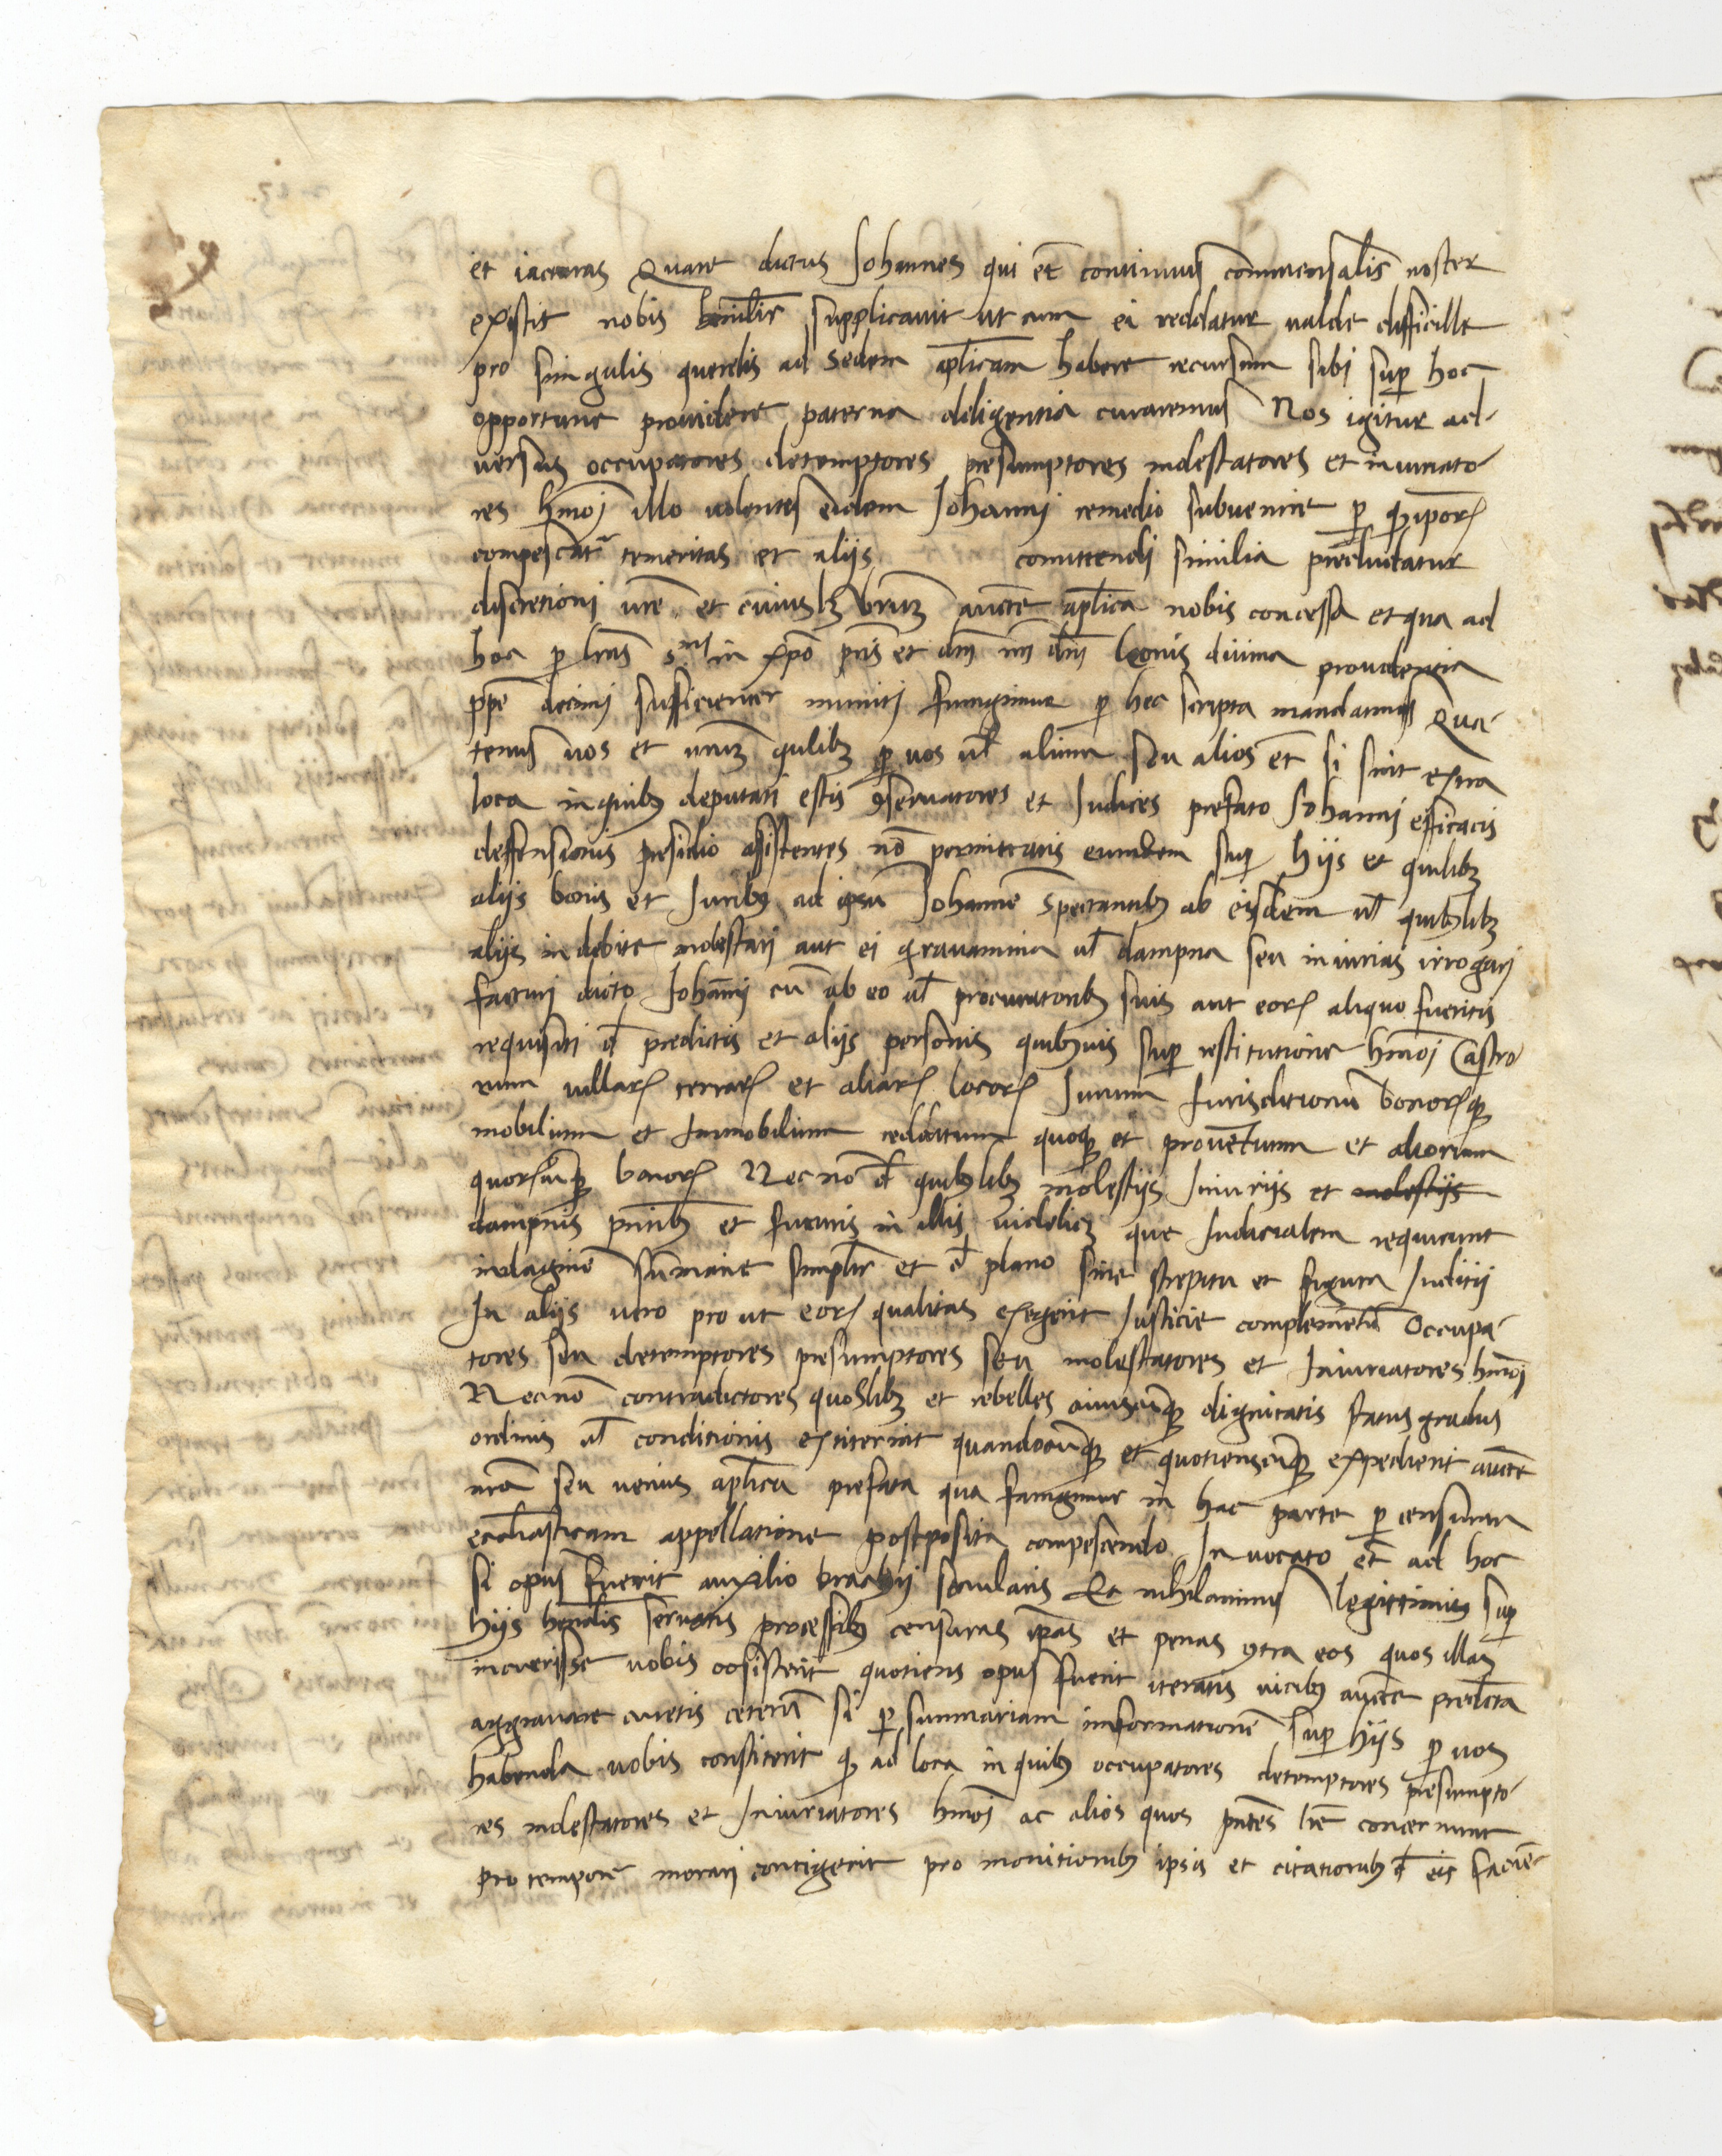 et iacturas Quare dictus Johannes qui et̄ continuus commensal̄is noster
existit nobis humilit̄r supplicavit ut cum ei reddatur valde difficille
pro singulis querelis ad Sedem ap̄licam habere recursum sibi sup̄ hoc
opportune providere paterna diligentia curaremus Nos igitur ad-
versus occupatores detemptores presumptores molestatores et iniuriato-
res hmōi illo volentes eidem Johanni remedio subvenire p̄ q̄ ip̄or̄
compescat̄ temeritas et aliis comittendi similia precludatur
discretioni vr̄e et cuiuslꝫ vr̄uꝫ auct̄e ap̄lica nobis concessa et qua ad
hoc p̄ lr̄as s^mi in xp̄o pr̄is et dn̄i nr̄i dn̄i Leonis divina providentia
pp̄e decimi sufficienter muniti fungimur p̄ hec scripta mandamus Qua-
tenus vos et vn̄uꝫ qulibꝫ p̄ vos vl̄ alium seu alios et̄ si sint extra
loca in quibꝫ deputati estis ꝯservatores et Judices prefato Johanni efficacis
deffensionis presidio assistentes nō permittatis eumdem sup̄ hiis et quilibꝫ
aliis bonis et Juribꝫ ad ip̄sū Johannē spectantibꝫ ab eisdem vl̄ quibꝫlibꝫ
aliis indebite molestari aut ei gravamina vl̄ dampna seu iniurias irrogari
facturi dicto Johan̄i cū ab eo vl̄ procuratoribꝫ suis aut eor̄ aliquo fueritis
requisiti d̄ predictis et aliis personis quibꝫvis sup̄ restitutione hmōi Castro-
rum villar̄ terrar̄ et aliar̄ locor̄ Jurium Jurisditionū bonor̄qꝫ
mobilium et Inmobilium reddituum quoqꝫ et proventuum et aliorum
quor̄cūqꝫ bonor̄ Nec nō d̄ quibꝫlibꝫ molestiis Iniuriis et molestiis
dampnis pn̄tibꝫ et futuris in illis videlicꝫ que Judicialem requirunt
indaginē summarie simplit̄r et d̄ plano sine strepitu et figura Juditii
In aliis vero pro ut eor̄ qualitas exegerit Justicie complementū Occupa-
tores seu detemptores presumptores seu molestatores et Iniuriatores hmōi
Nec nō contradictores quoslibꝫ et rebelles cuiuscūqꝫ dignitatis status gradus
ordinis vl̄ conditionis extiterint quandocūqꝫ et quotienscūqꝫ expedierit auct̄e
nr̄a seu verius ap̄lica prefata qua fungimur in hac parte p̄ censuram
eccl̄iasticam appellatione postposita compescendo Invocato et̄ ad hoc
si opus fuerit auxilio brachii secularis Et nihilominus legittimis sup̄
hiis hn̄dis servatis processibꝫ censuras ip̄as et penas ꝯtra eos quos illas
incurrisse vobis cōstiterit quotiens opus fuerit iteratis vicibꝫ auct̄e predicta
aggravare curetis ceterū si p̄ summariam informationē sup̄ hiis p̄ vos
habenda vobis constiterit q̄ ad loca in quibꝫ occupatores detemptores presumpto-
res molestatores et Iniuriatores hmōi ac alios quos pn̄tes lr̄e concernunt
pro tempore morari contigerit pro monitionibꝫ ipsis et citationibꝫ d̄ eis facien-